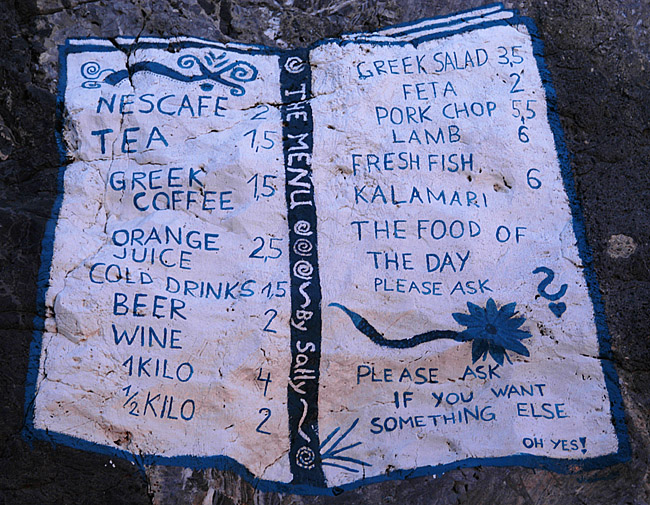 NESCAFE 2
TEA 1,5
GREEK
COFFEE 1,5
ORANGE
JUICE 2,5
COLD DRINKS 1,5
BEER 2
WINE
1 KILO 4
1/2 KILO 2
THE MENU
By Sally
GREEK SALAD 3,5
FETA 2
PORK CHOP 5,5
LAMB 6
FRESH FISH,
KALAMARI 6
THE FOOD OF
THE DAY
PLEASE ASK
PLEASE ASK
IF YOU WANT
SOMETHING ELSE
OH YES!